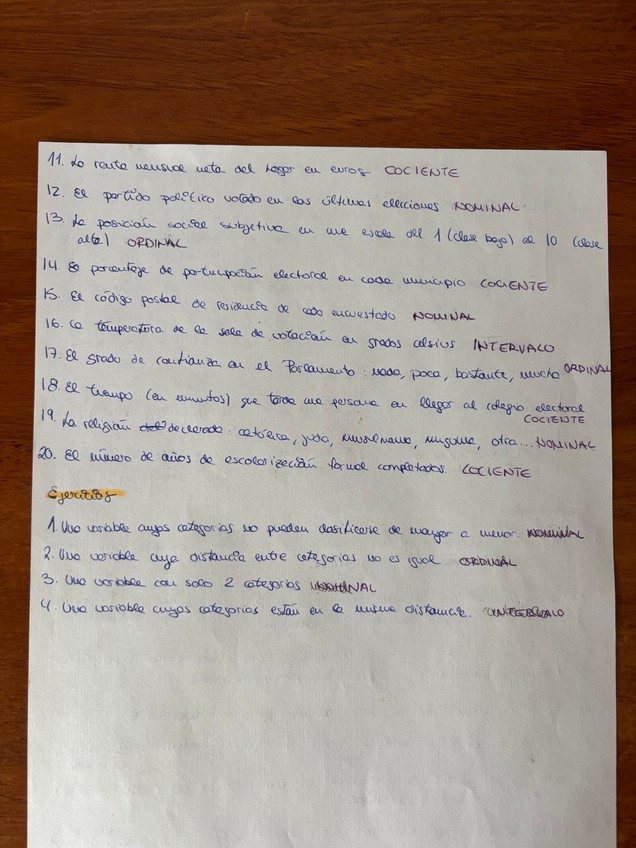 11. La renta mensual neta del hogar en euros COCIENTE
12. El partido político votado en las últimas elecciones NOMINAL
13. La posición social subjetiva en una escala del 1 (clase baja) al 10 (clase
alta) ORDINAL
14 El porcentaje de participación electoral en cada municipio COCIENTE
15. El código postal de residencia de cada encuestado NOMINAL
16. La temperatura de la sala de votación en grados celsius INTERVALO
17. El grado de confianza en el Parlamento: nada, poca, bastante, mucha ORDINAL
18. El tiempo (en minutos) que tarda una persona en llegar al colegio electoral
COCIENTE
19. La religión declarada: católica, judía, musulmana, ninguna, otra... NOMINAL
20. El número de años de escolarización formal completados. COCIENTE
Ejercicios
1. Una variable cuyas categorías no pueden clasificarse de mayor a menor. NOMINAL
2. Una variable cuya distancia entre categorías no es igual ORDINAL
3. Una variable con solo 2 categorías NOMINAL
4. Una variable cuyas categorías están en la misma distancia. INTERVALO